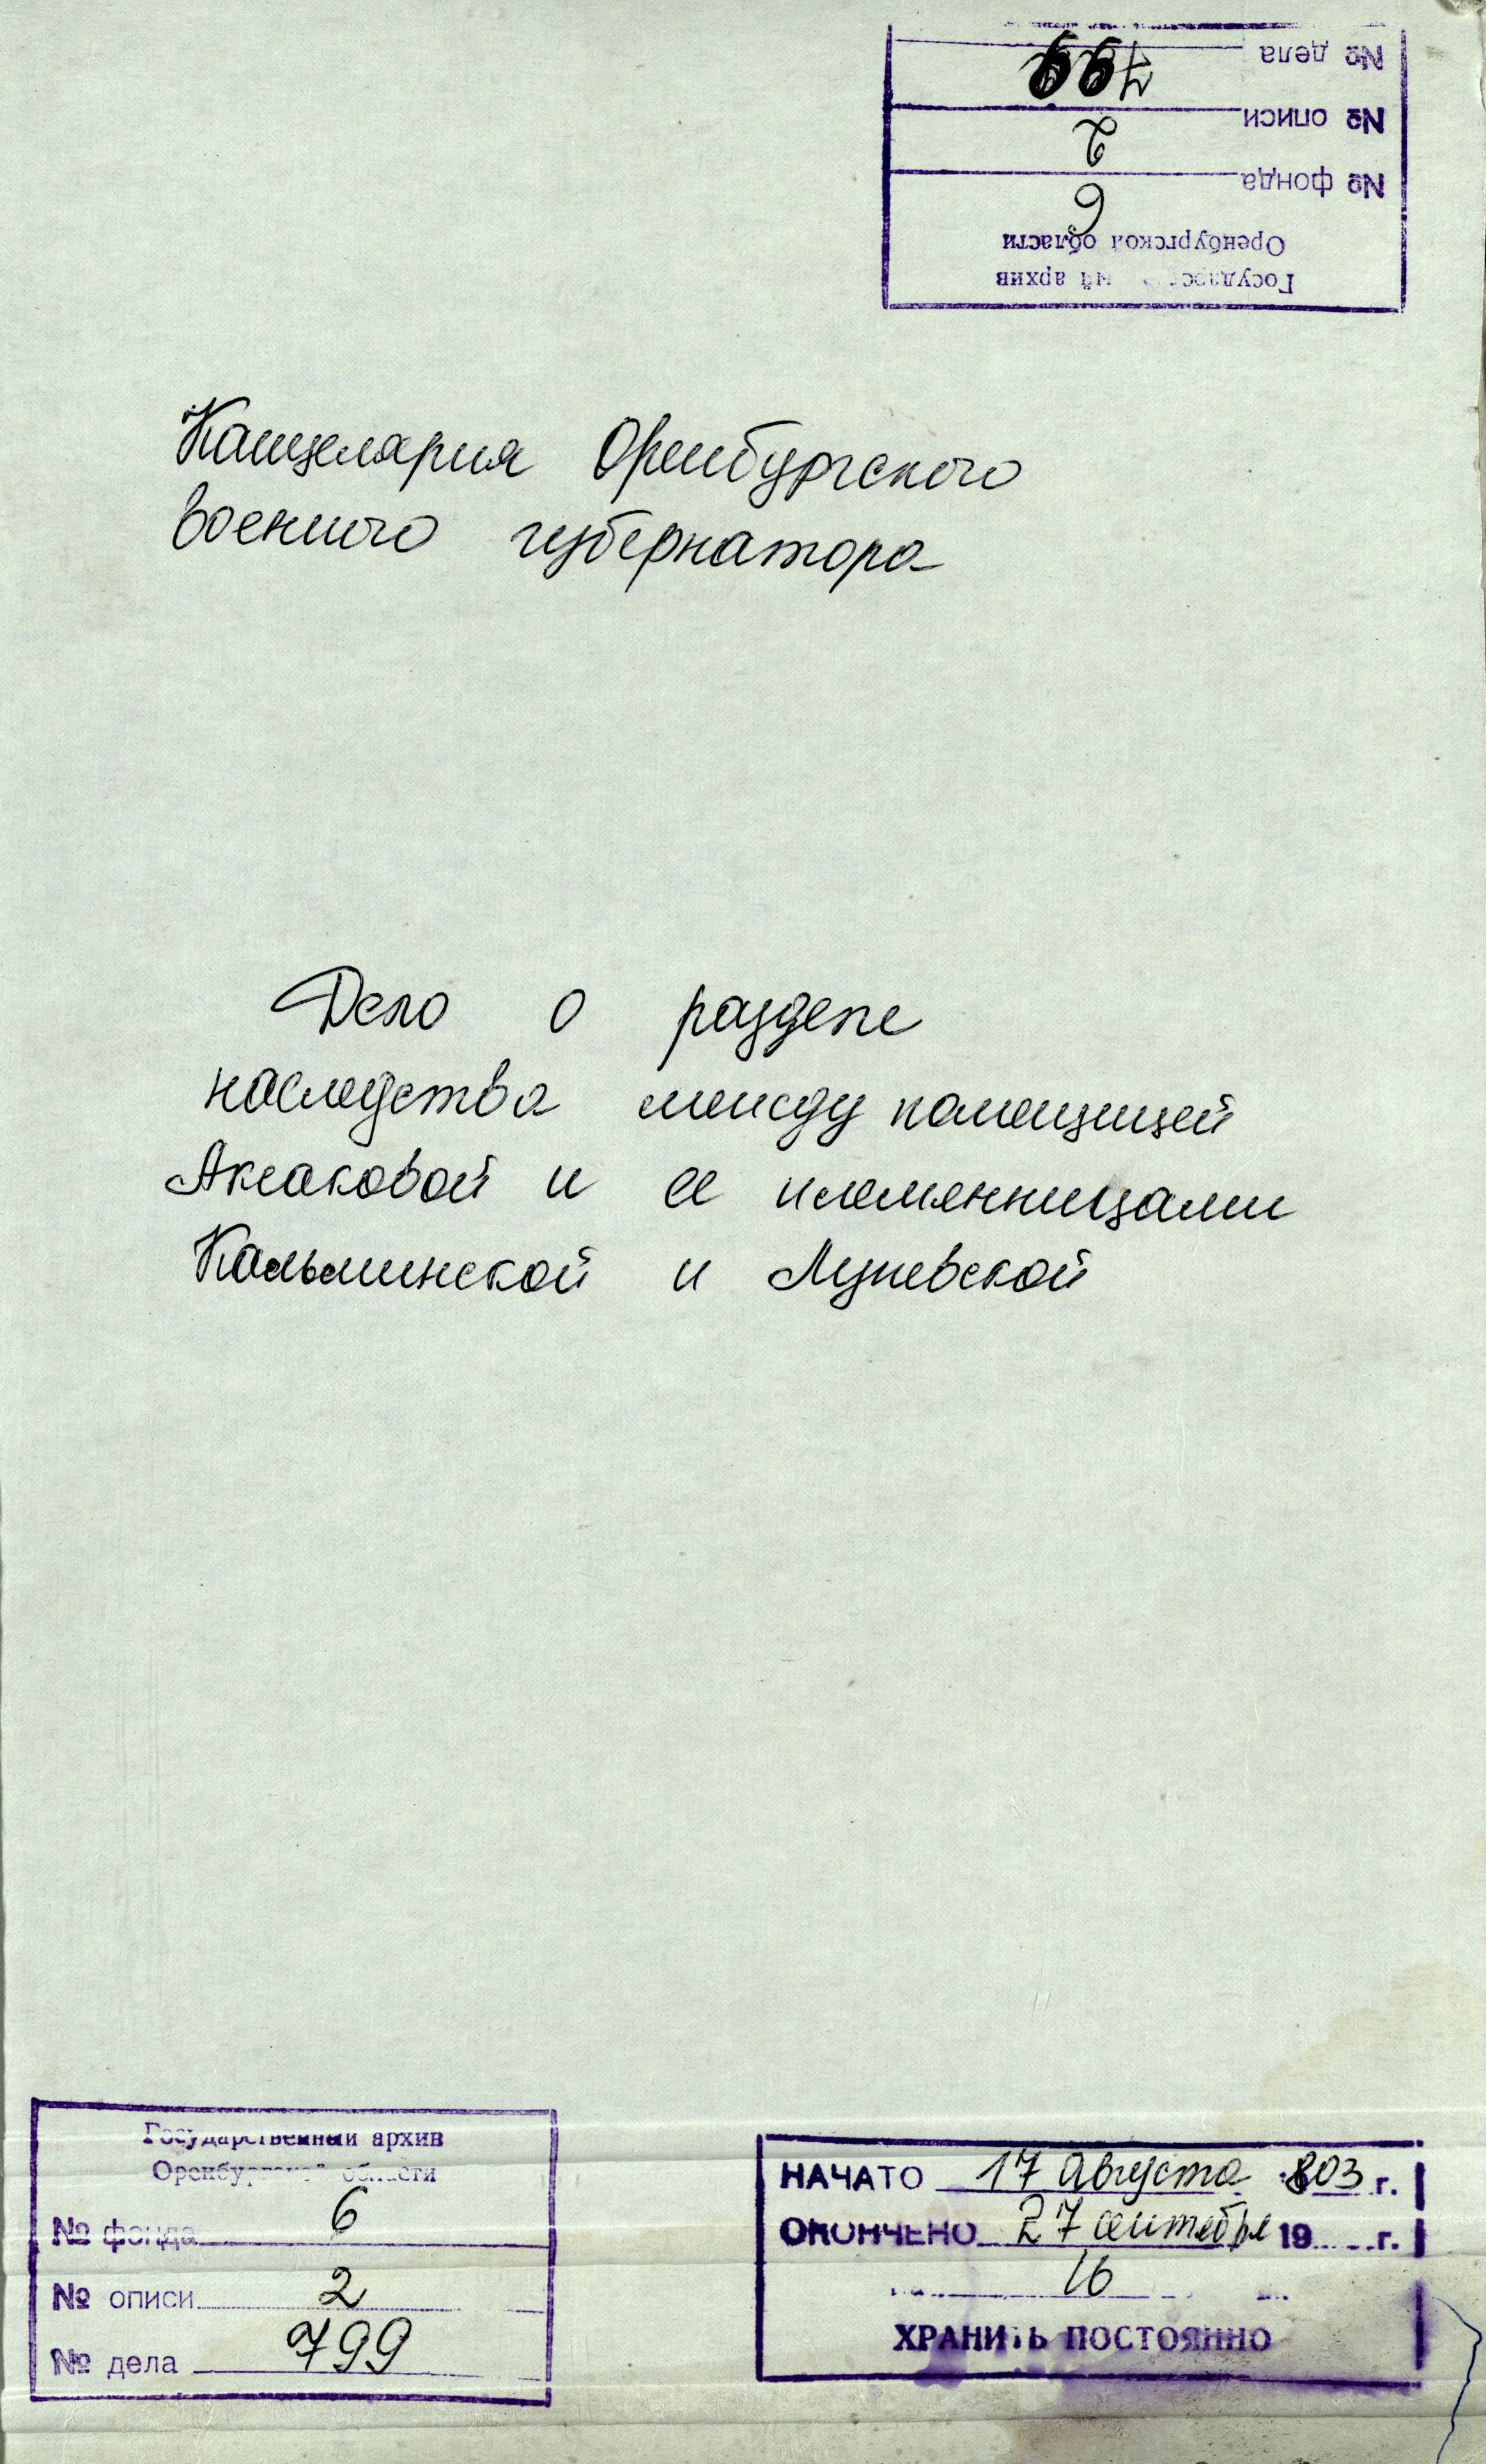 № дела 799
№ описи 2
№ фонда 6
Оренбургской области
Государственный архив
Канцелярия Оренбургского
военного губернатора
Дело о разделе
наследства между помещицей
Аксаковой и ее племянницами
Кальминской и Луневской
Государственный архив
Оренбургской области
№ фонда 6
№ описи 2
№ дела 799
НАЧАТО 17 августа 1803 г.
ОКОНЧЕНО 27 сентября 19 г.
16
ХРАНИТЬ ПОСТОЯННО